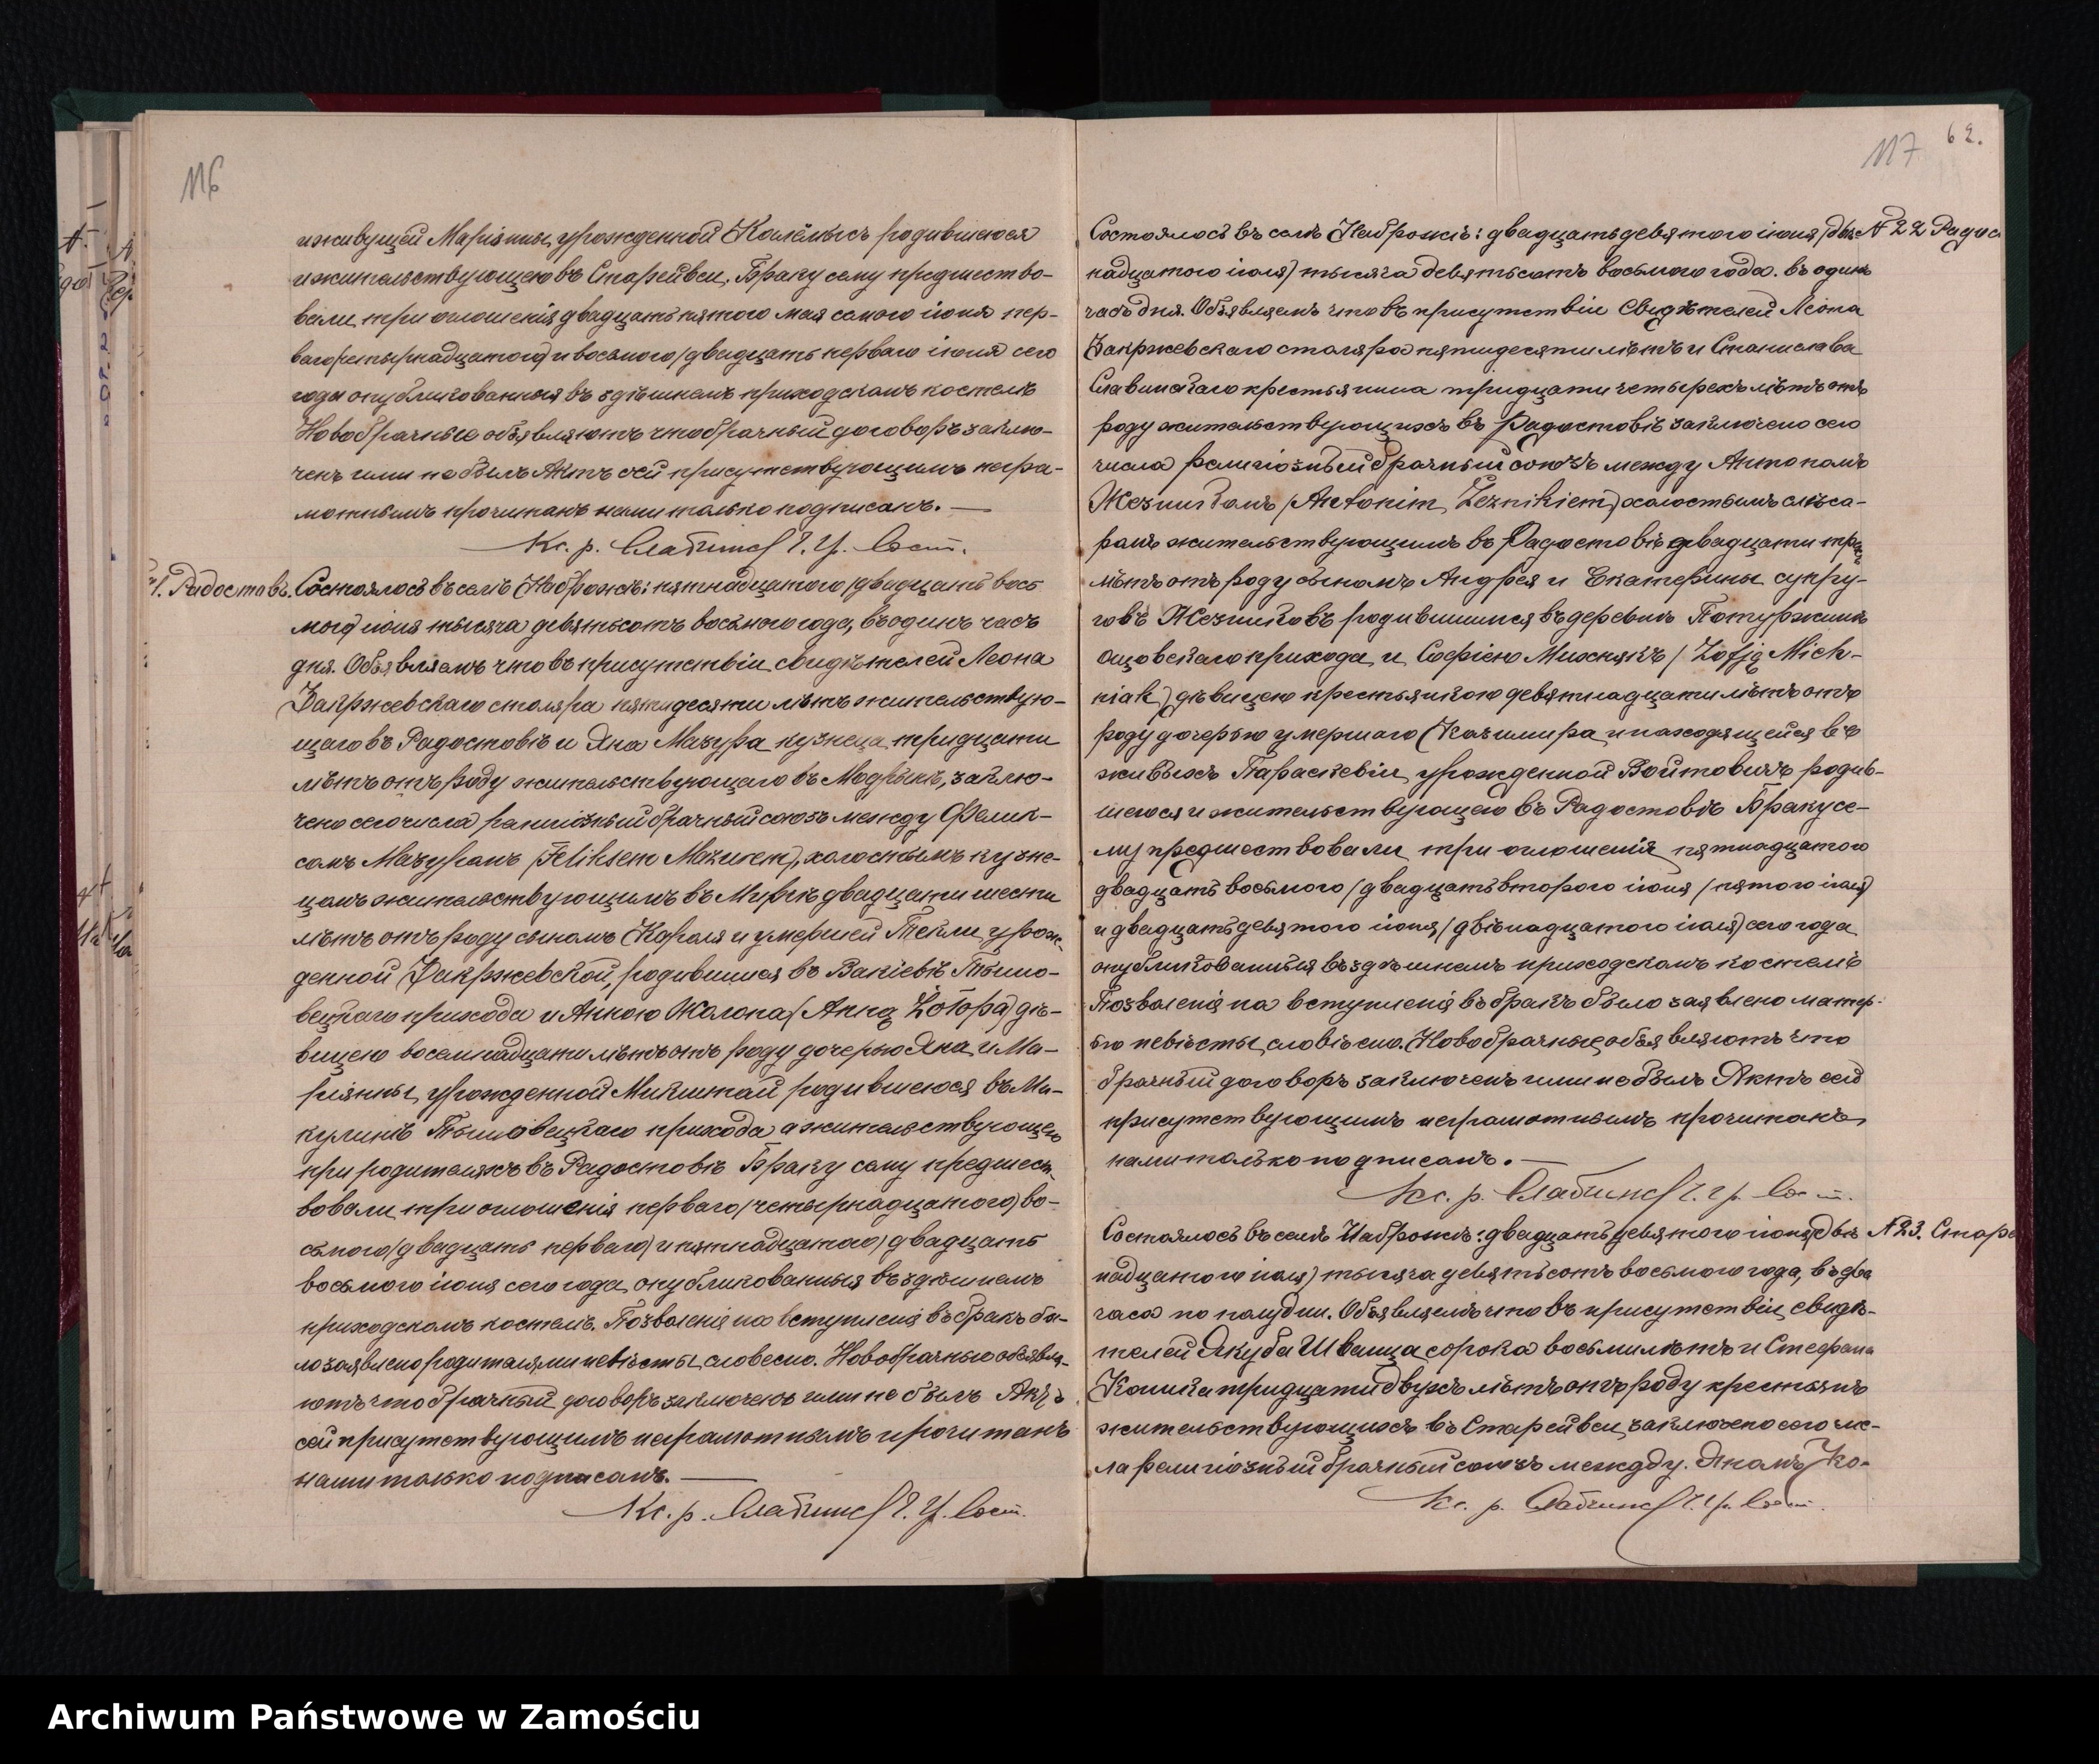 116
и живущей Маріянны, урожденной родившеюся
и жительствующею въ Старейвси. Браку сему предшество-
вали три оглашенія двадцать пятого мая сего іюня пер-
ваго (четырнадцатого) и восьмого (двадцать перваго іюня сего
года опубликованныя въ здѣшнемъ приходскомъ костелѣ
Новобрачные объявляютъ что брачный договоръ заклю-
ченъ ими не былъ Актъ сей присутствующимъ негра-
мотнымъ прочитанъ нами только подписанъ. —
Кс. р.
Радостовъ. Состоялось въ селѣ Наброжѣ: пятнадцатого (двадцать вось
мого) іюня тысяча девятьсотъ восьмого года, въ одинъ часъ
дня. Объявляемъ что въ присутствіи свидѣтелей Леона
Закржевскаго столяра пятидесяти лѣтъ жительствую-
щаго въ Радостовѣ и Яна Мазура кузнеца тридцати
лѣтъ отъ роду жительствующаго въ Модрынѣ, заклю-
чено сего числа религіозный брачный союзъ между Фелик-
сомъ Мазуромъ (Feliksem Mazurem), холостымъ кузне-
цомъ жительствующимъ въ двадцати шести
лѣтъ отъ роду сыномъ Кароля и умершей Теклы урож-
денной Закржевской, родившимся въ Вакіевѣ Тышо-
вецкаго прихода и Анною Жолопа (Anną Żołopa) дѣ-
вицею восемнадцати лѣтъ отъ роду дочерью Яна и Ма-
ріянны, урожденной родившеюся въ Ми-
кулинѣ Тышовецкаго прихода а жительствующею
при родителяхъ въ Радостовѣ Браку сему предшест-
вовали три оглашенія перваго (четырнадцатого) во-
сьмого (двадцать перваго) и пятнадцатого) двадцать
восьмого іюня сего года опубликованныя въ здѣшнемъ
приходскомъ костелѣ. Позволенія на вступленія въ бракъ бы-
ло заявлено родителями невѣсты словесно. Новобрачные объявля-
ютъ что брачный договоръ заключенъ ими не былъ Актъ
сей присутствующимъ неграмотнымъ прочитанъ
нами только подписанъ. —
Кс. р.
117 62.
Состоялось въ селѣ Наброжѣ: двадцать девятого іюня (двѣ N 22 Радос
надцатого іюля) тысяча девятьсотъ восьмого года. въ одинъ
часъ дня. Объявляемъ что въ присутствіи Свидѣтелей Леона
Закржевскаго столяра пятидесяти лѣтъ и Станислава
Славинскаго крестьянина тридцати четырехъ лѣтъ отъ
роду жительствующихъ въ Радостовѣ заключено сего
числа религіозный брачный союзъ между Антономъ
Жезникомъ (Antonim Żeznikiem) холостымъ слѣса-
ромъ жительствующимъ въ Радостовѣ двадцати трехъ
лѣтъ отъ роду сыномъ Андрея и Екатерины супру-
говъ Жезниковъ родившимся въ деревнѣ Потуржинѣ
прихода и Софіею Михнякъ (Zofją Mich-
niak) дѣвицею крестьянкою девятнадцати лѣтъ отъ
роду дочерью умершаго Казимира и находящейся въ
живыхъ Параскевіи урожденной Войтовичъ родив-
шеюся и жительствующею въ Радостовѣ Браку се-
му предшествовали три оглашенія пятнадцатого
двадцать восьмого (двадцать второго іюня (пятого іюля)
и двадцать девятого іюня (двѣнадцатого іюля) сего года
опубликованныя въ здѣшнемъ приходскомъ костелѣ
Позволенія на вступленія въ бракъ было заявлено матер-
ью невѣсты словѣсно. Новобрачные объявляютъ что
брачный договоръ заключенъ ими не былъ Актъ сей
присутствующимъ неграмотнымъ прочитанъ,
нами только подписанъ. —
Кс. р.
Состоялось въ селѣ Наброжѣ: двадцать девятого іюня (двѣ N 23. Старе
надцатого іюля) тысяча девятьсотъ восьмого года, въ два
часа по полудни. Объявляемъ что въ присутствіи свидѣ-
телей Якуба Шванца сорока восьми лѣтъ и Стефана
тридцати двухъ лѣтъ отъ роду крестьянъ
жительствующихъ въ Старейвси, заключено сего чис-
ла религіозный брачный союзъ между. Яномъ Ко-
Кс. р.
Archiwum Państwowe w Zamościu